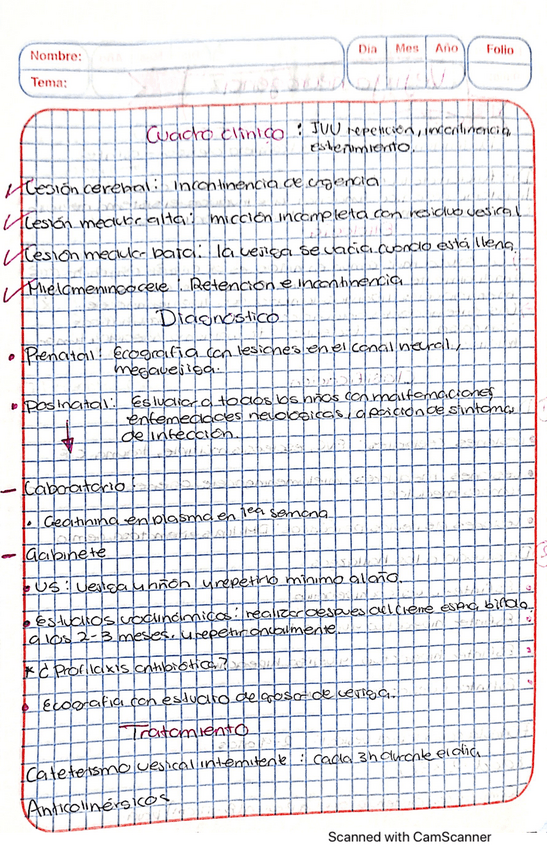 Nombre:
Día Mes Año
Folio
Tema:
Cuadro clínico : IVU repetición, incontinencia,
estreñimiento.
✓ Lesión cerebral: incontinencia de urgencia
✓ Lesión medular alta: micción incompleta con residuo vesical
✓ Lesión medular baja: la vejiga se vacia cuando está llena.
✓ Mielomeningocele : Retención e incontinencia
Diagnóstico
• Prenatal: Ecografía con lesiones en el canal neural,
megavejiga.
• Posnatal: Estudiar a todos los niños con malformaciones
enfermedades neurologicas, aparición de sintoma
de infección.
- Laboratorio:
• Creatinina en plasma en 1era semana
- Gabinete
• US: vejiga y riñón y repetirlo mínimo al año.
• Estudios urodinámicos: realizar despues del cierre espina bifida
a los 2-3 meses, y repetir anualmente.
* ¿Profilaxis antibiótica?
• Ecografia con estudio de grosor de vejiga.
Tratamiento
Cateterismo vesical intermitente : cada 3h durante el dia
Anticolinérgicos
Scanned with CamScanner